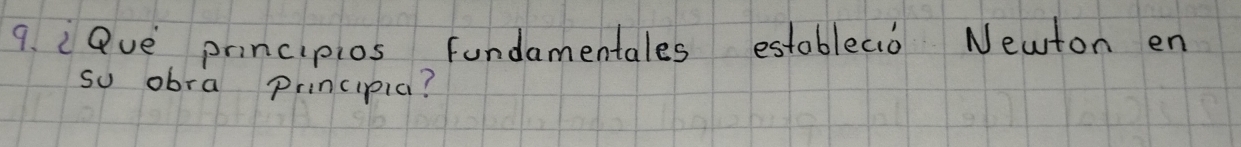 9. ¿Qué principios fundamentales estableció Newton en
su obra Principia?